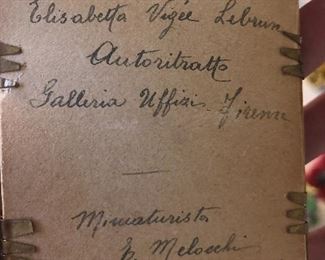 Elisabetta Vigée Lebrun
Autoritratto
Galleria Uffizi - Firenze
Miniaturista
E. Melocchi